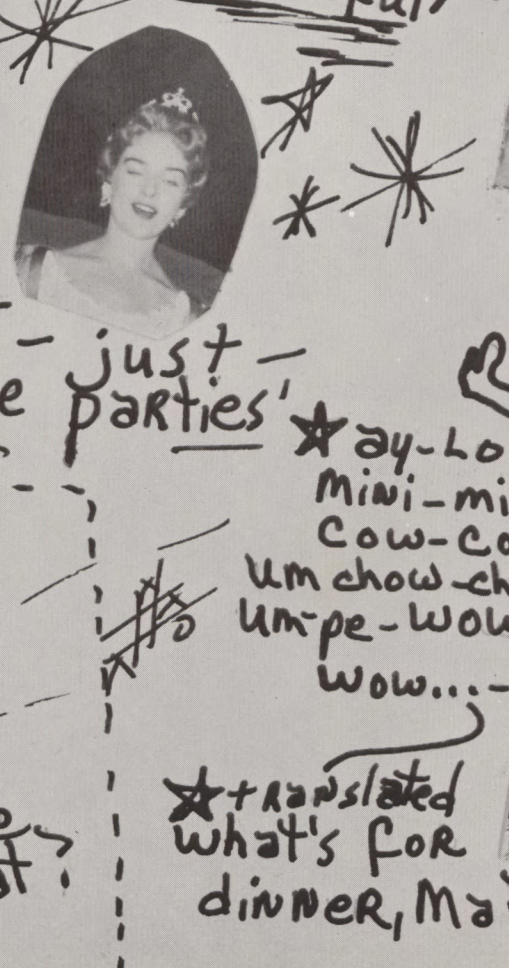 - just -
parties'
☆ ay-Lo
Mini-mi
Cow-co
Um chow-ch
Um-pe-Wow
Wow...-
☆ translated
what's for
dinner, Ma